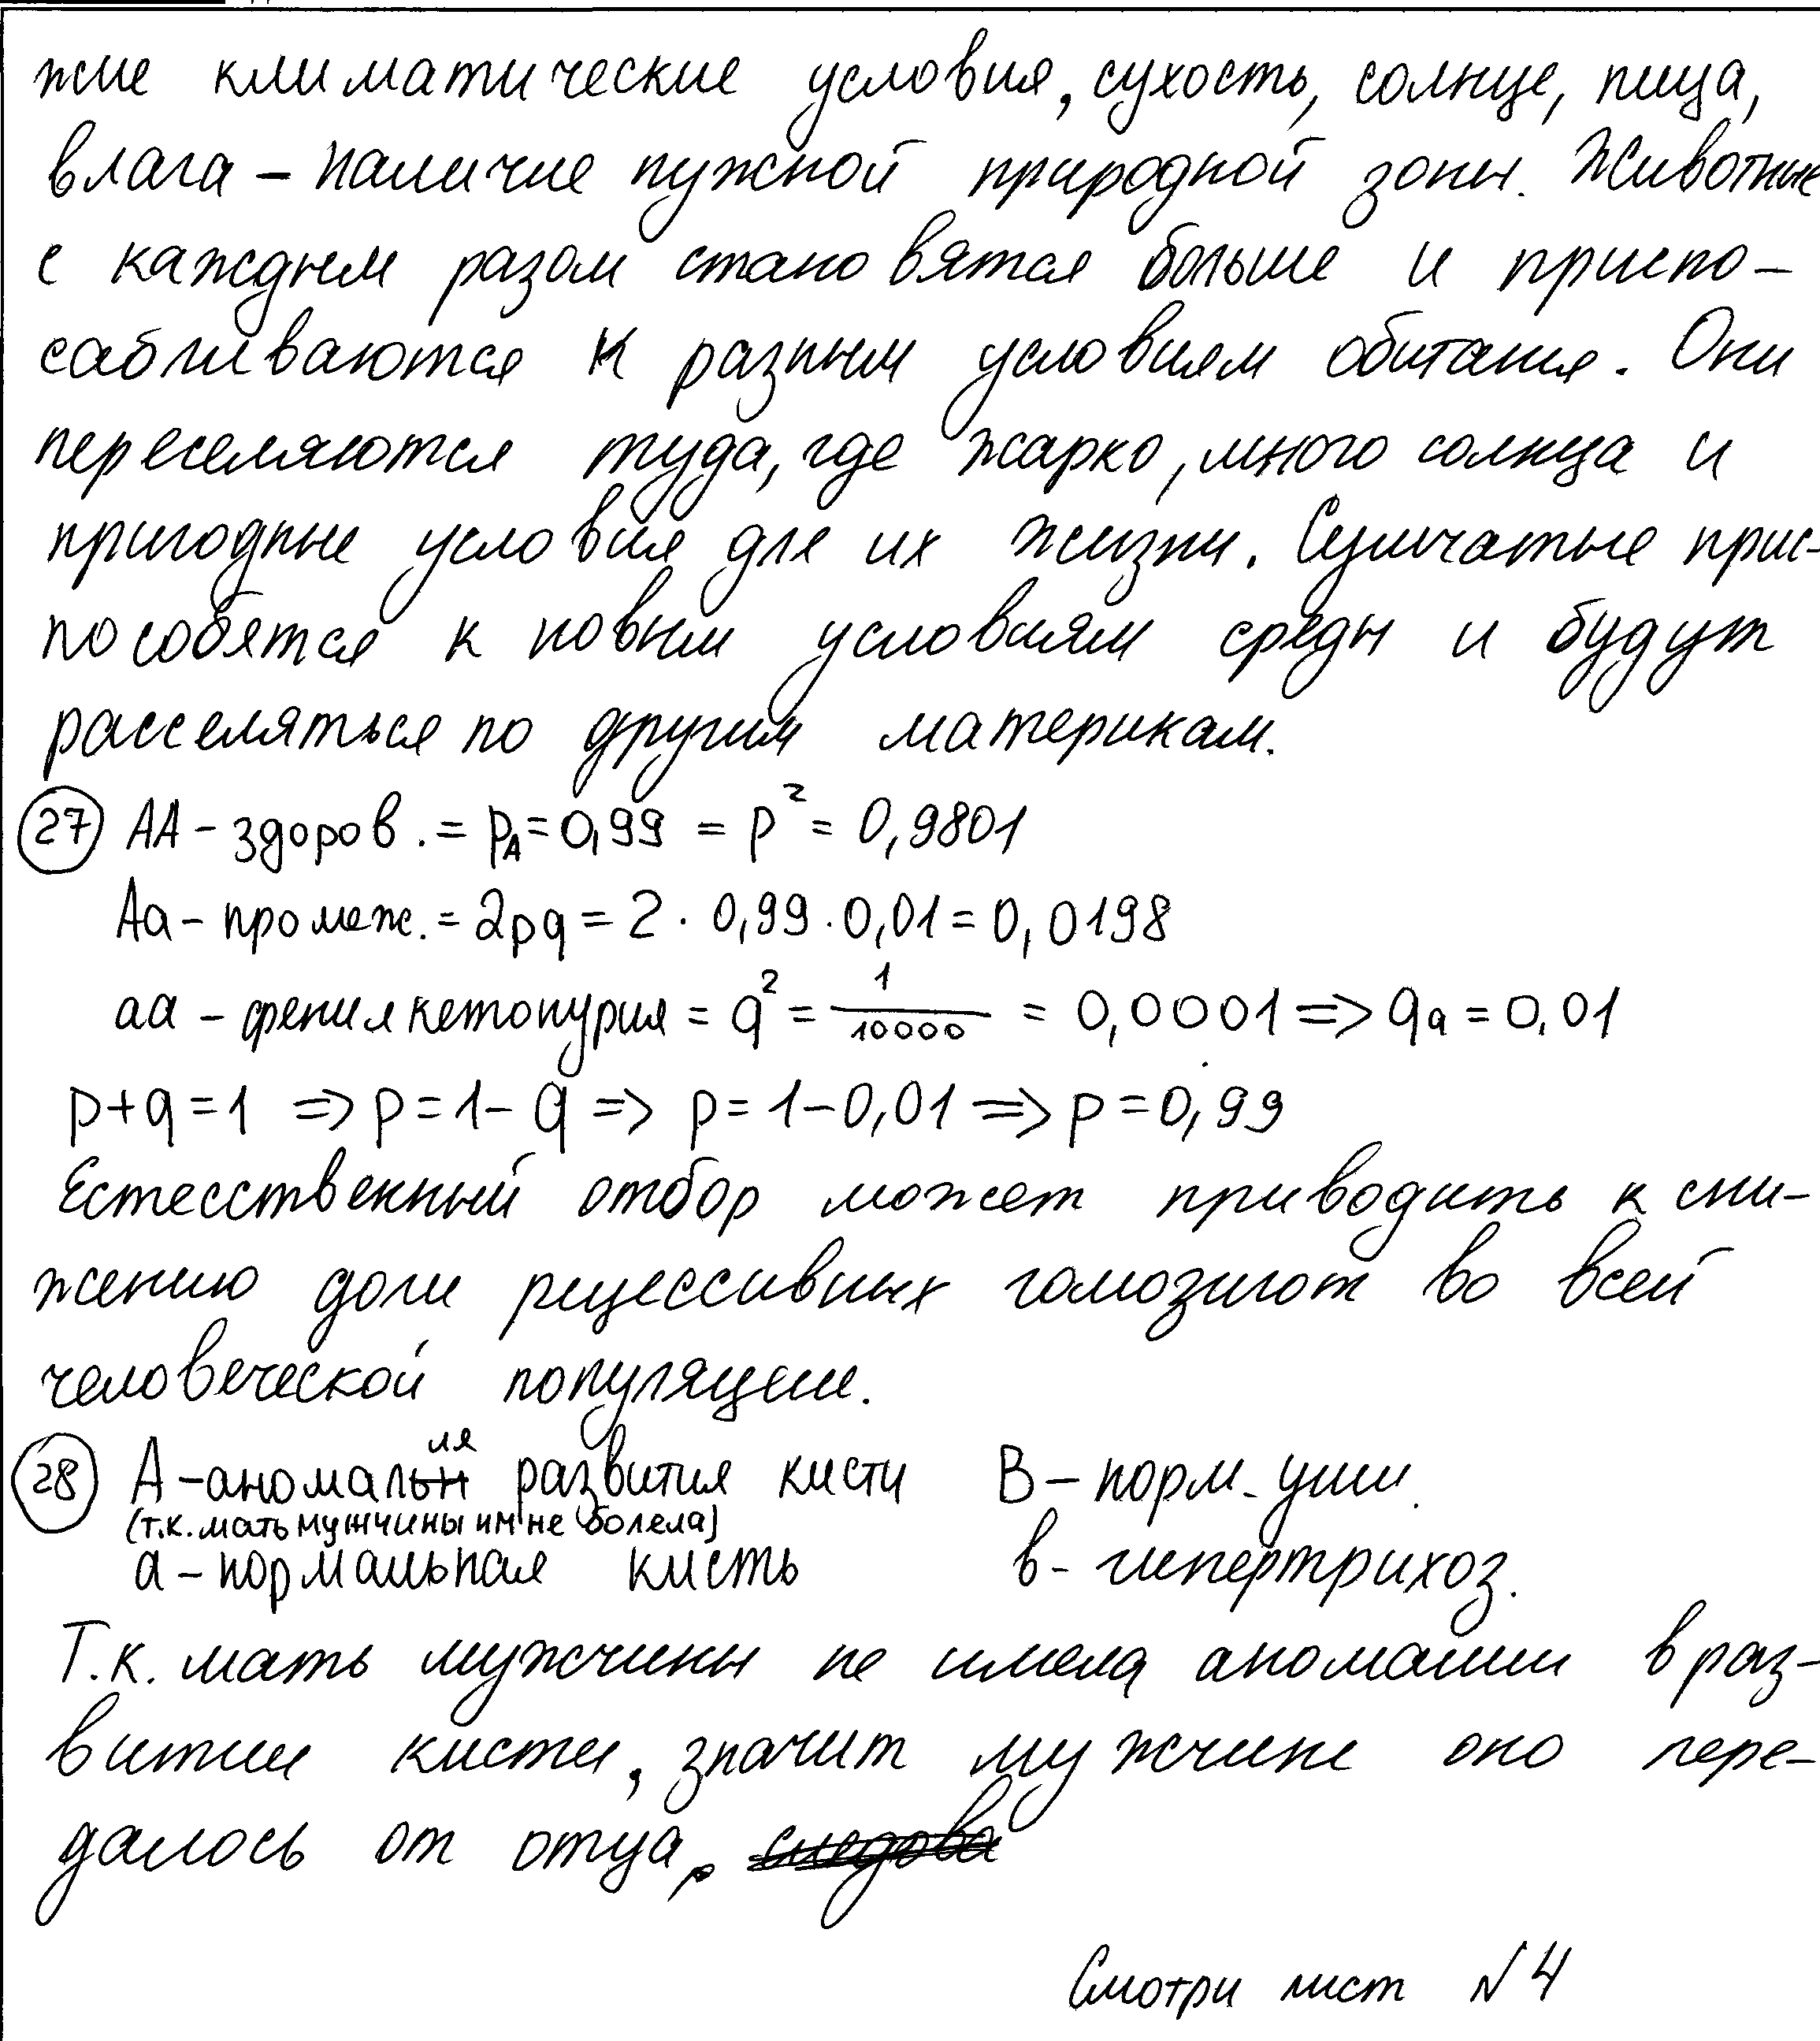 жие климатические условия, сухость, солнце, пища,
влага - наличие нужной природной зоны. Животные
с каждым разом становятся больше и приспо-
сабливаются к разным условиям обитания. Они
переселяются туда, где жарко, много солнца и
пригодные условия для их жизни. Сумчатые прис-
пособятся к новым условиям среды и будут
расселяться по другим материкам.
27 AA - здоров. = pA = 0,99 = p² = 0,9801
Aa - промеж. = 2pq = 2 · 0,99 · 0,01 = 0,0198
aa - фенилкетонурия = q² = 1/10000 = 0,0001 => qa = 0,01
p+q=1 => p=1-q => p=1-0,01 => p=0,99
Естесственный отбор может приводить к сни-
жению доли рецессивных гомозигот во всей
человеческой популяции.
28 А - аномалия развития кисти В - норм. уши.
(т.к. мать мужчины им не болела)
а - нормальная кисть в - гипертрихоз.
Т.к. мать мужчины не имела аномалии в раз-
витии кисти, значит мужчине оно пере-
далось от отца.
Смотри лист №4